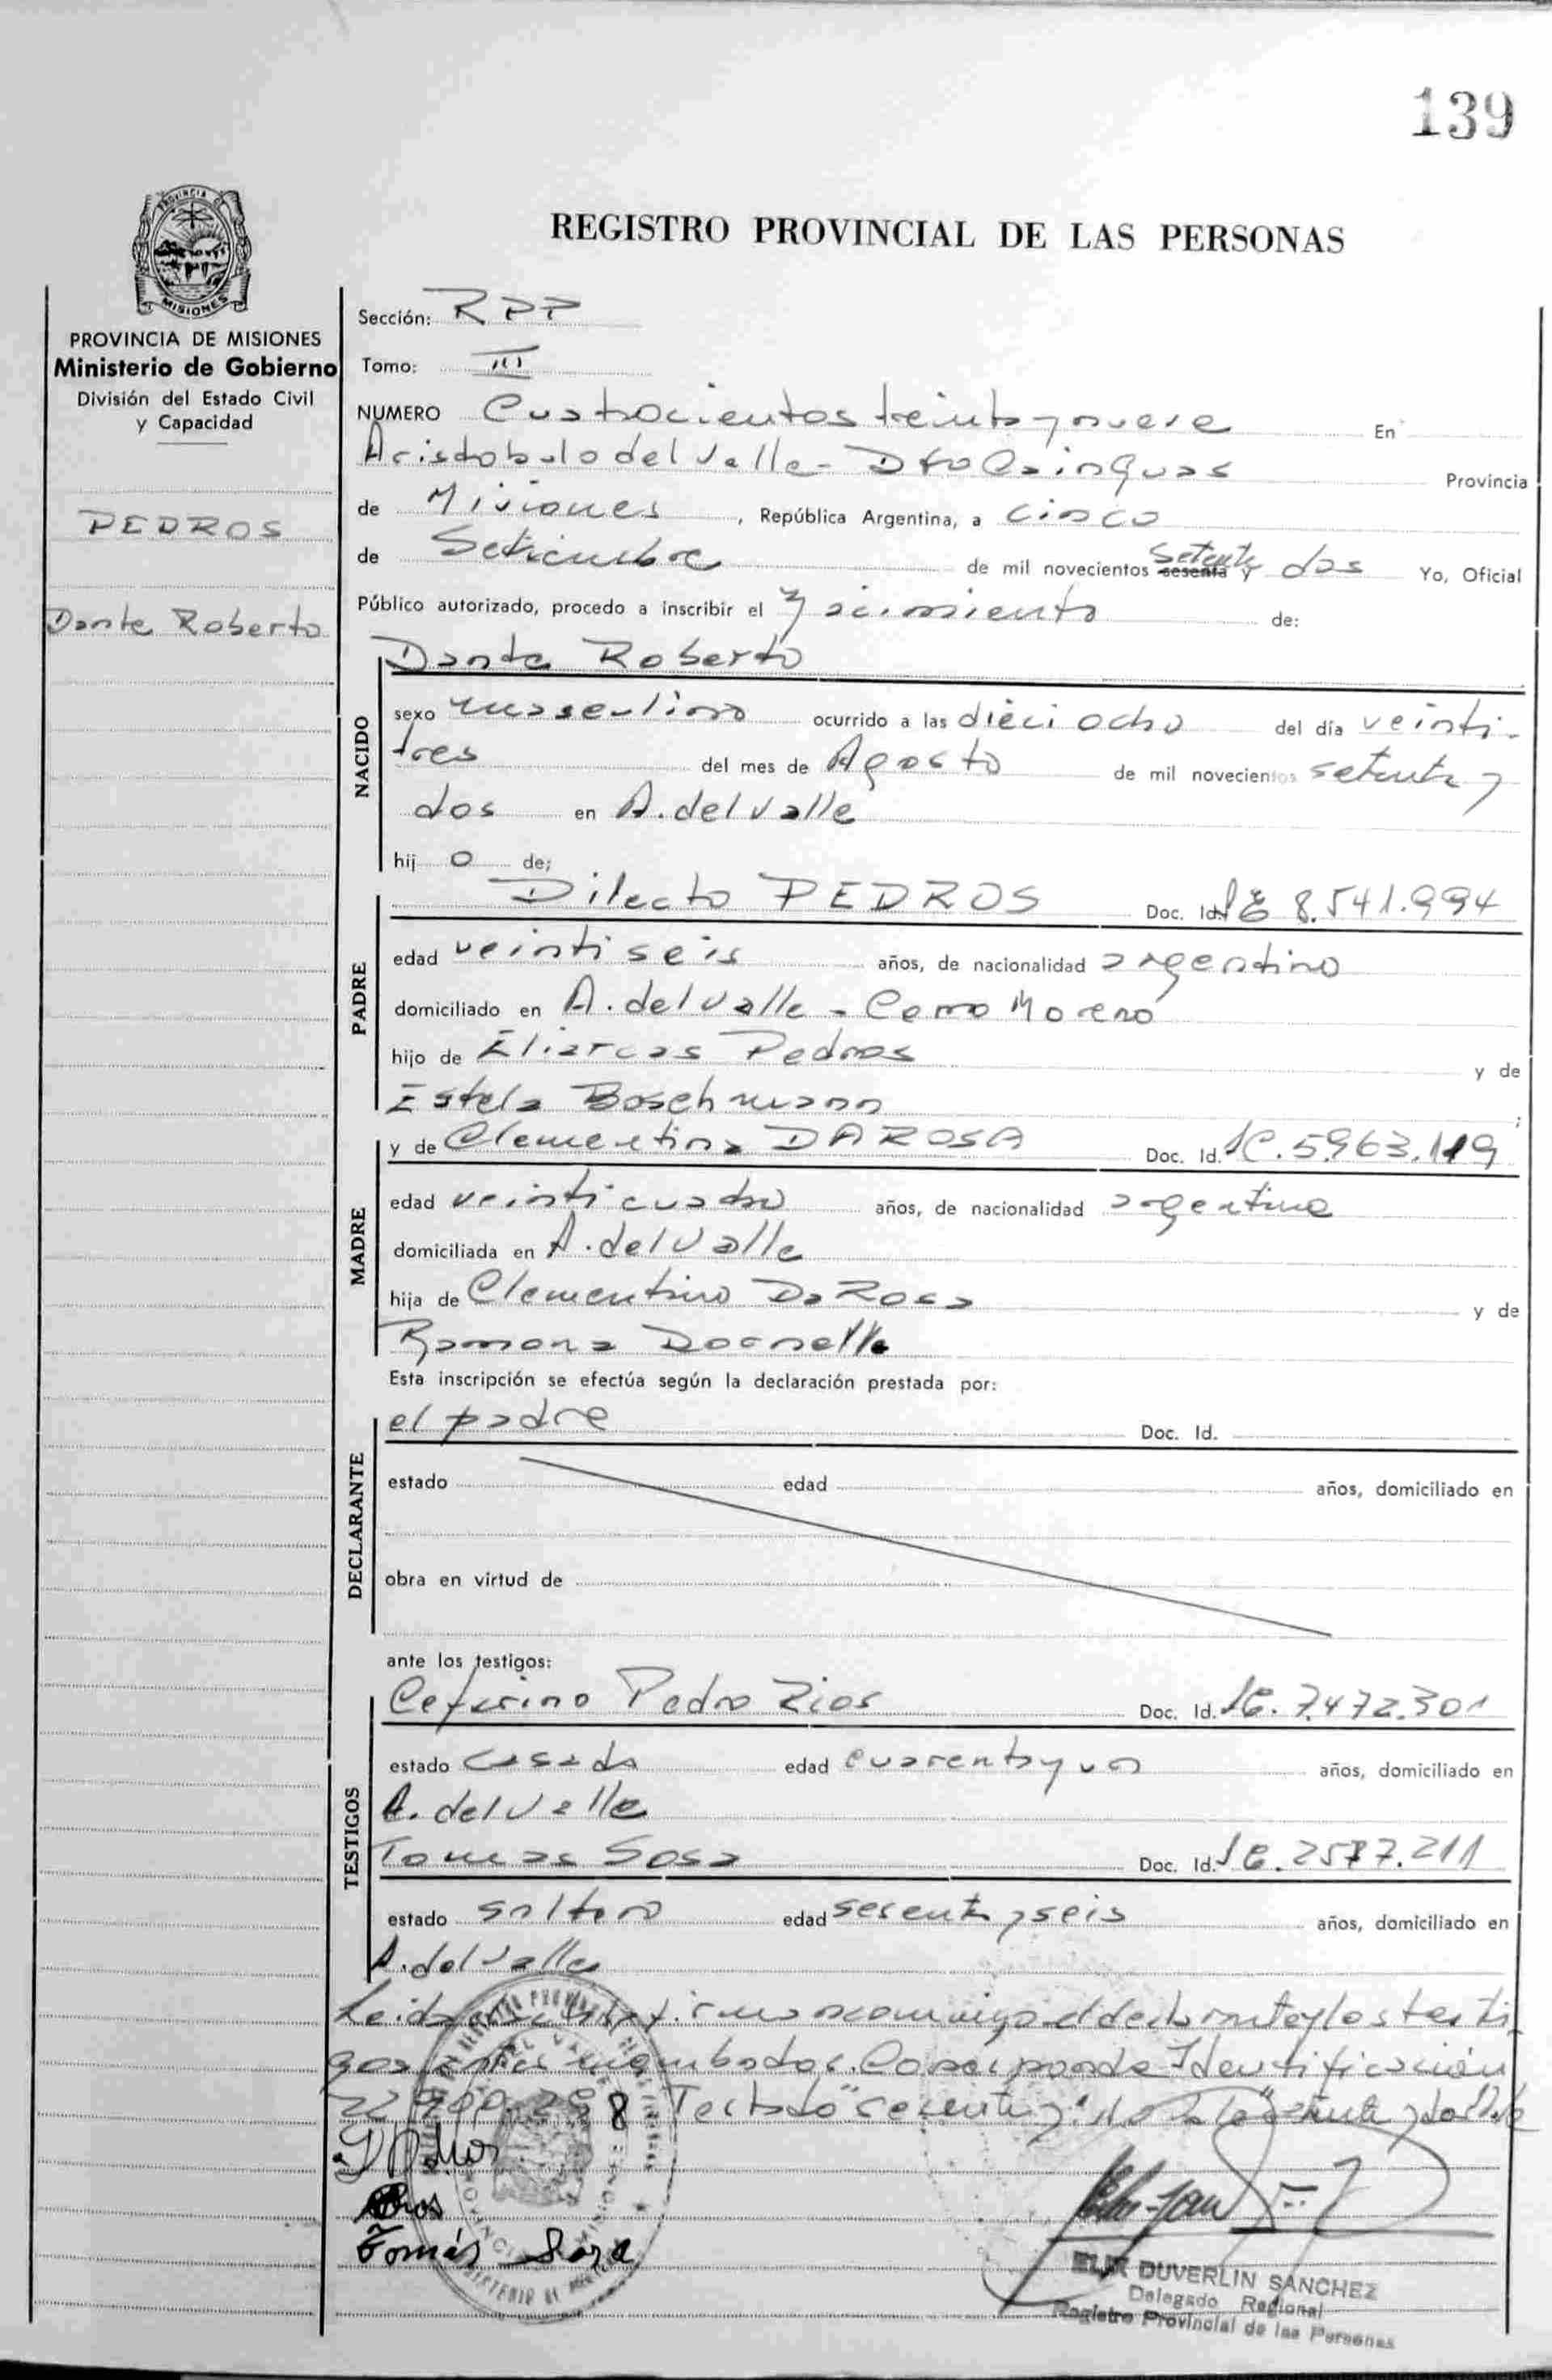 139
REGISTRO PROVINCIAL DE LAS PERSONAS
PROVINCIA DE
MISIONES
PROVINCIA DE MISIONES
Ministerio de Gobierno
División del Estado Civil
y Capacidad
PEDROS
Dante Roberto
Sección: RPP
Tomo: III
NUMERO Cuatrocientos treinta y nueve En
Aristobulo del Valle - Dto Cainguas Provincia
de Misiones , República Argentina, a cinco
de Setiembre de mil novecientos sesenta y Setenta y dos Yo, Oficial
Público autorizado, procedo a inscribir el nacimiento de:
Dante Roberto
NACIDO
sexo masculino ocurrido a las dieci ocho del día veinti-
tres del mes de Agosto de mil novecientos setenta y
dos en A. del Valle
hij o de;
PADRE
Dilecto PEDROS Doc. Id. LE 8.541.994
edad veintiseis años, de nacionalidad argentino
domiciliado en A. del Valle - Cerro Moreno
hijo de Eliarcas Pedros y de
Estela Boschmann ;
MADRE
y de Clementina DA ROSA Doc. Id. LC. 5.963.119
edad veinticuatro años, de nacionalidad argentina
domiciliada en A. del Valle
hija de Clementino Da Rosa y de
Ramona Dornelle
Esta inscripción se efectúa según la declaración prestada por:
DECLARANTE
el padre Doc. Id.
estado edad años, domiciliado en
obra en virtud de
ante los testigos:
TESTIGOS
Ceferino Pedro Rios Doc. Id. LE. 7.472.301
estado casado edad cuarenta y un años, domiciliado en
A. del Valle
Tomas Sosa Doc. Id. LE. 2587.211
estado soltero edad sesenta y seis años, domiciliado en
A. del Valle
Leida el acta firman conmigo el declarante y los testi
gos antes nombrados. Corresponde Identificación
Testado "sesenta y" No Vale
Tomás Sosa
DUVERLIN SANCHEZ
Delegado Regional
Registro Provincial de las Personas